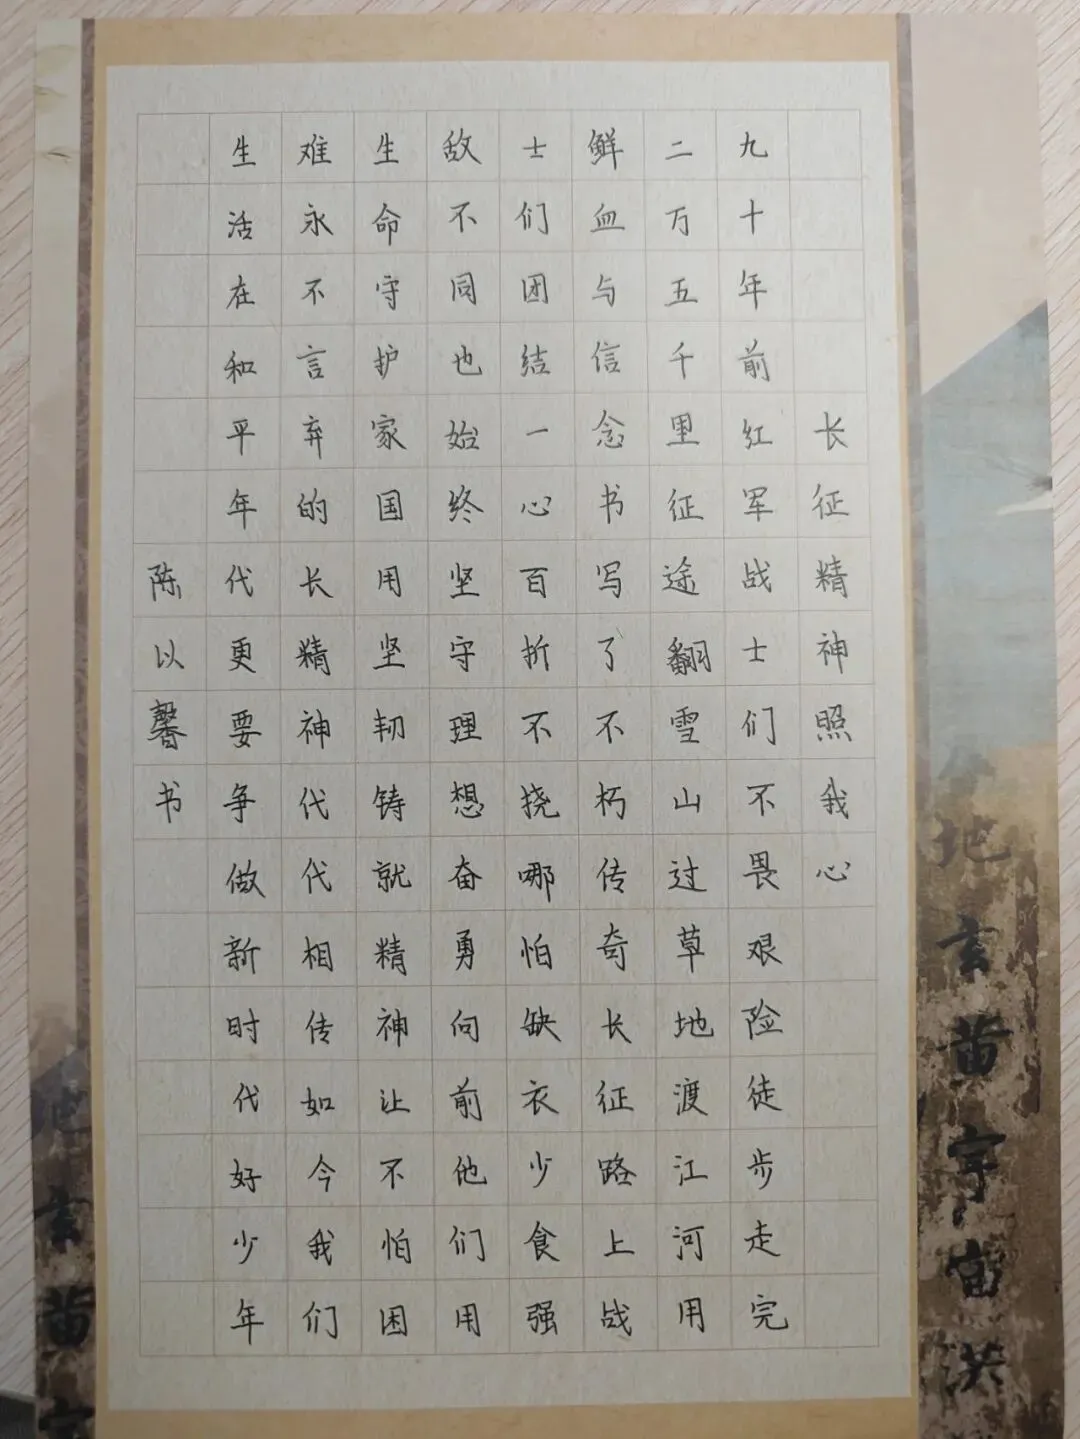 长征精神照我心
九十年前红军战士们不畏艰险徒步走完
二万五千里征途翻雪山过草地渡江河用
鲜血与信念书写了不朽传奇长征路上战
士们团结一心百折不挠哪怕缺衣少食强
敌不同也始终坚守理想奋勇向前他们用
生命守护家国用坚韧铸就精神让不怕困
难永不言弃的长精神代代相传如今我们
生活在和平年代更要争做新时代好少年
陈以馨书